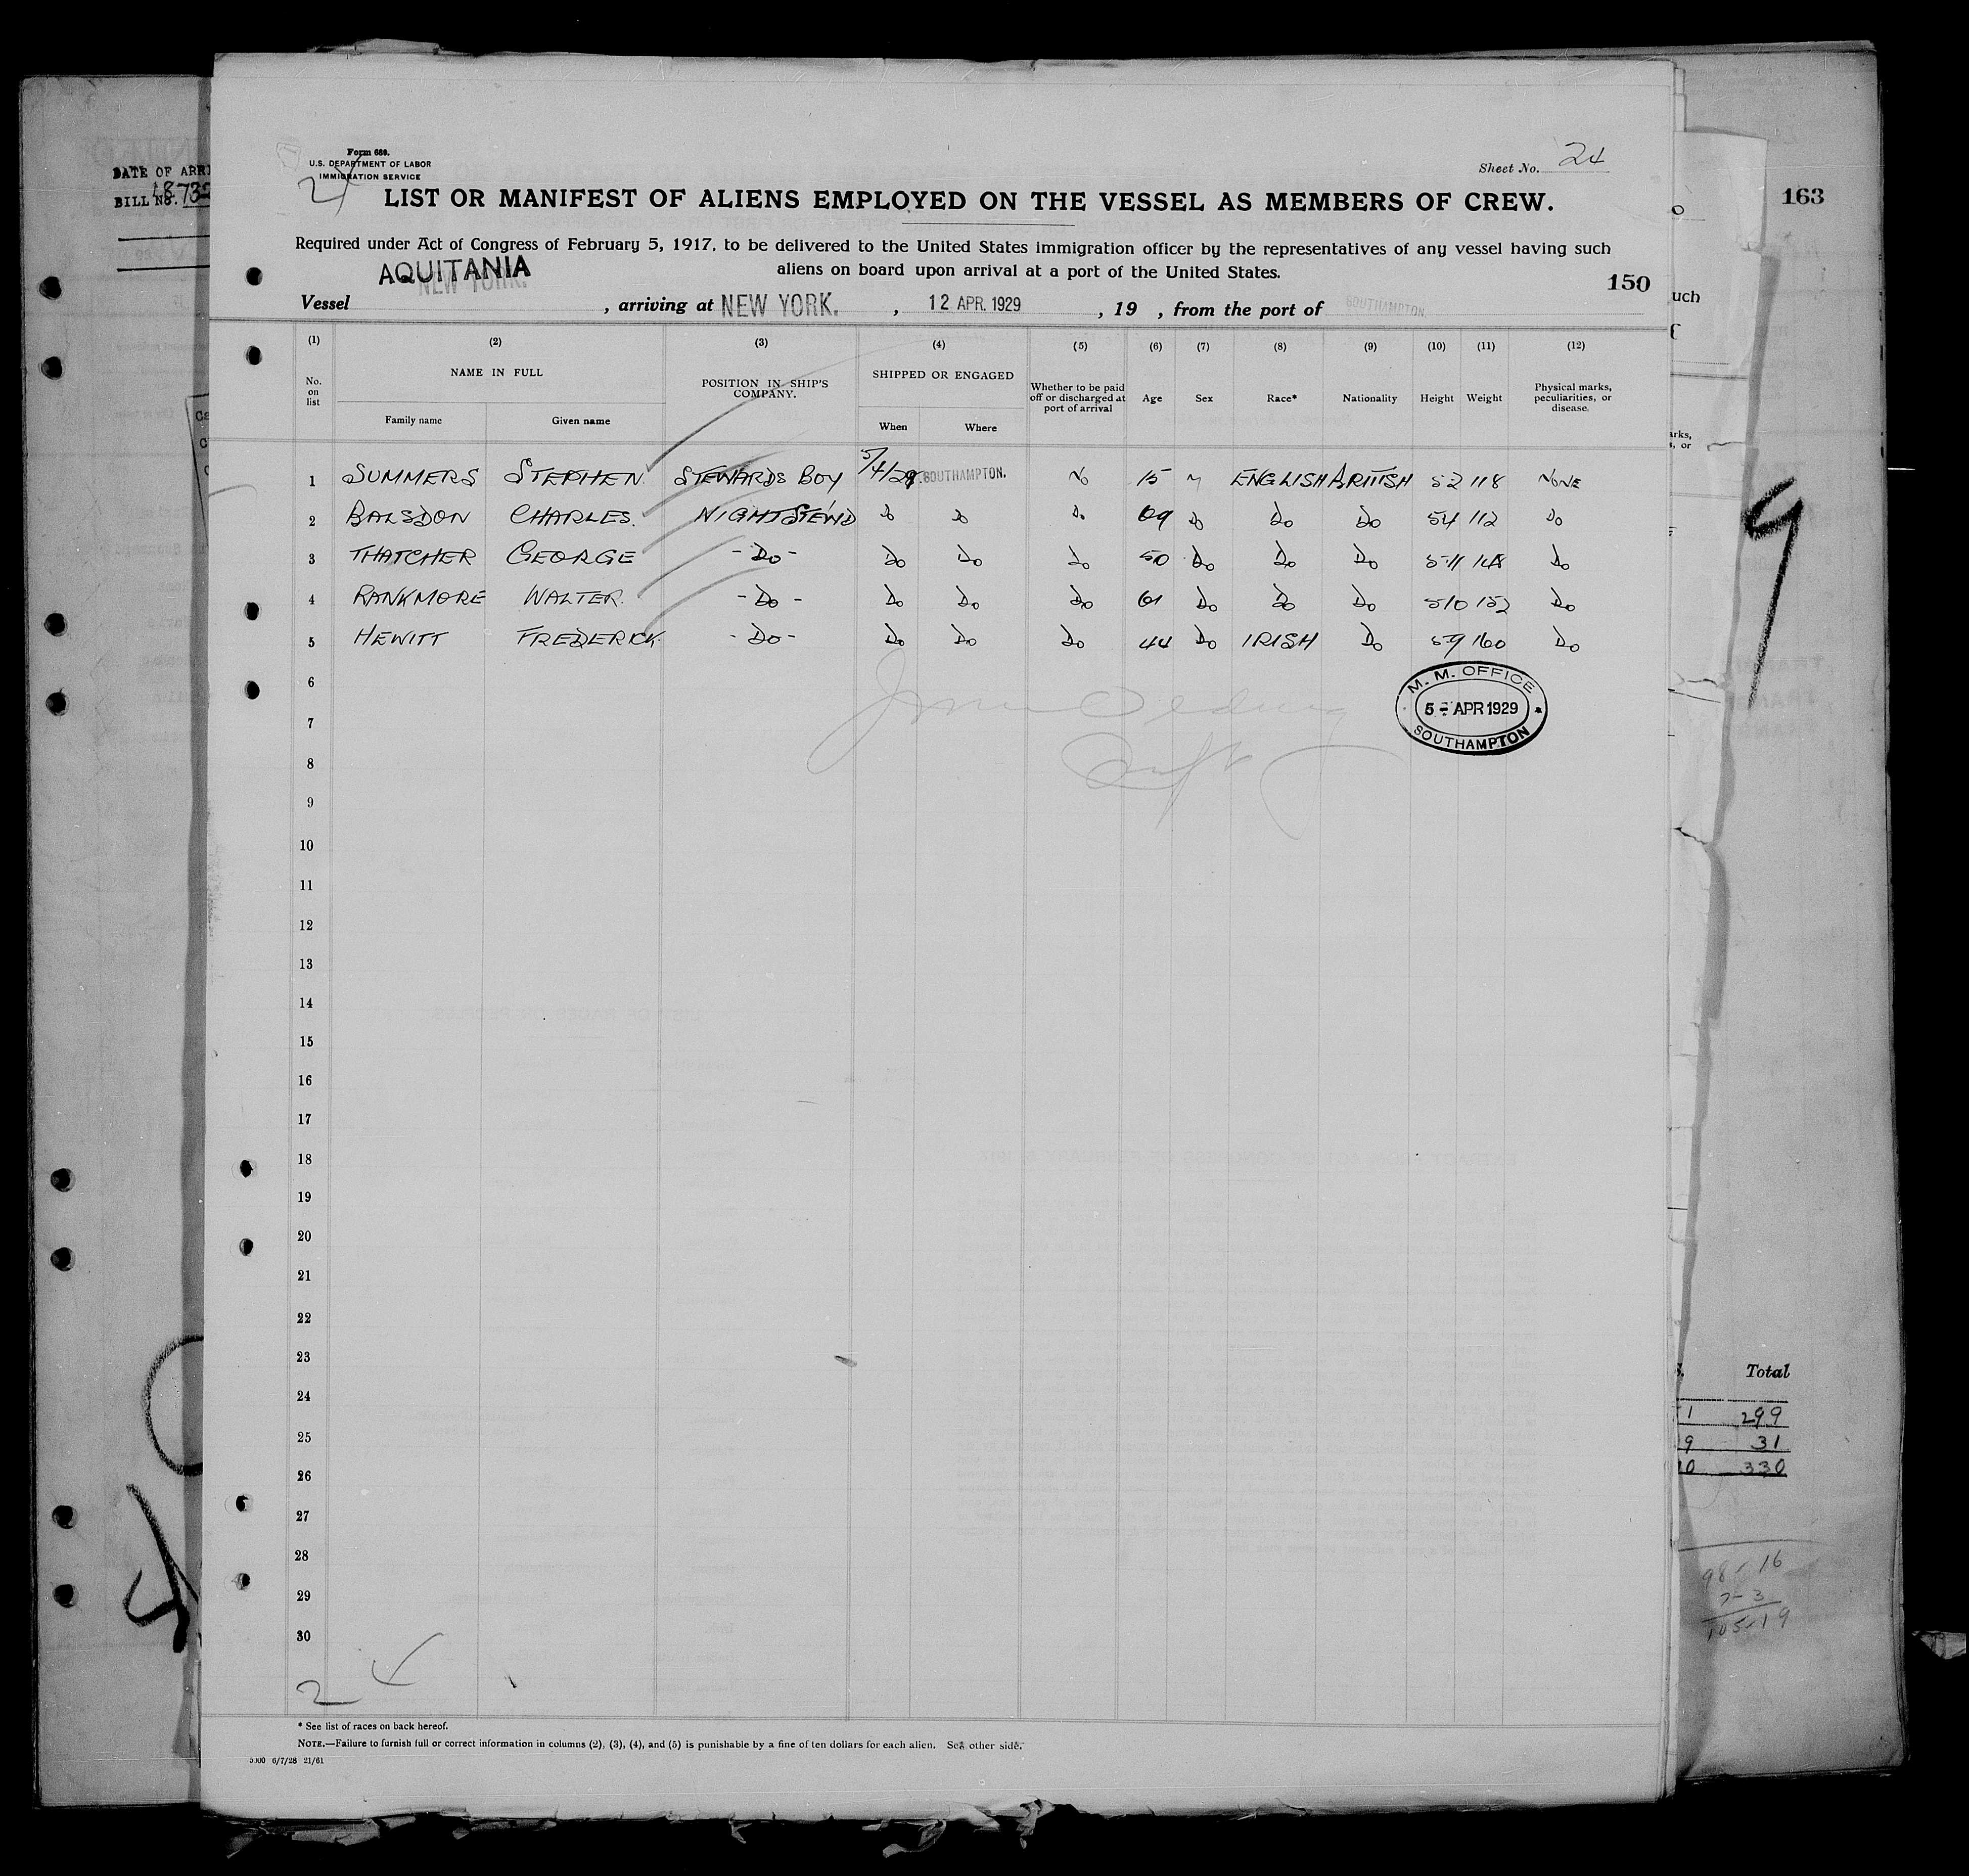 Form 689.
U.S. DEPARTMENT OF LABOR
IMMIGRATION SERVICE
24
Sheet No. 24
LIST OR MANIFEST OF ALIENS EMPLOYED ON THE VESSEL AS MEMBERS OF CREW.
Required under Act of Congress of February 5, 1917, to be delivered to the United States immigration officer by the representatives of any vessel having such
aliens on board upon arrival at a port of the United States.
150
Vessel AQUITANIA NEW YORK. , arriving at NEW YORK. , 12 APR. 1929 , 19 , from the port of SOUTHAMPTON
(1) (2) (3) (4) (5) (6) (7) (8) (9) (10) (11) (12)
No. on list NAME IN FULL POSITION IN SHIP'S COMPANY. SHIPPED OR ENGAGED Whether to be paid off or discharged at port of arrival Age Sex Race* Nationality Height Weight Physical marks, peculiarities, or disease.
Family name Given name When Where
1 SUMMERS STEPHEN STEWARDS BOY 5/4/29 SOUTHAMPTON. No 15 M ENGLISH BRITISH 52 118 NONE
2 BALSDON CHARLES. NIGHT STEWD Do Do Do 69 Do Do Do 54 112 Do
3 THATCHER GEORGE -Do- Do Do Do 50 Do Do Do 511 148 Do
4 RANKMORE WALTER. -Do- Do Do Do 61 Do Do Do 510 152 Do
5 HEWITT FREDERICK -Do- Do Do Do 44 Do IRISH Do 59 160 Do
6
7
8
9
10
11
12
13
14
15
16
17
18
19
20
21
22
23
24
25
26
27
28
29
30
M. M. OFFICE
5 - APR 1929
SOUTHAMPTON
24
* See list of races on back hereof.
NOTE.—Failure to furnish full or correct information in columns (2), (3), (4), and (5) is punishable by a fine of ten dollars for each alien. See other side.
6/7/28 21/61
DATE OF ARRI
BILL NO.
163
9
uch
arks,
s, or
Total
299
31
330
98-16
7-3
105-19